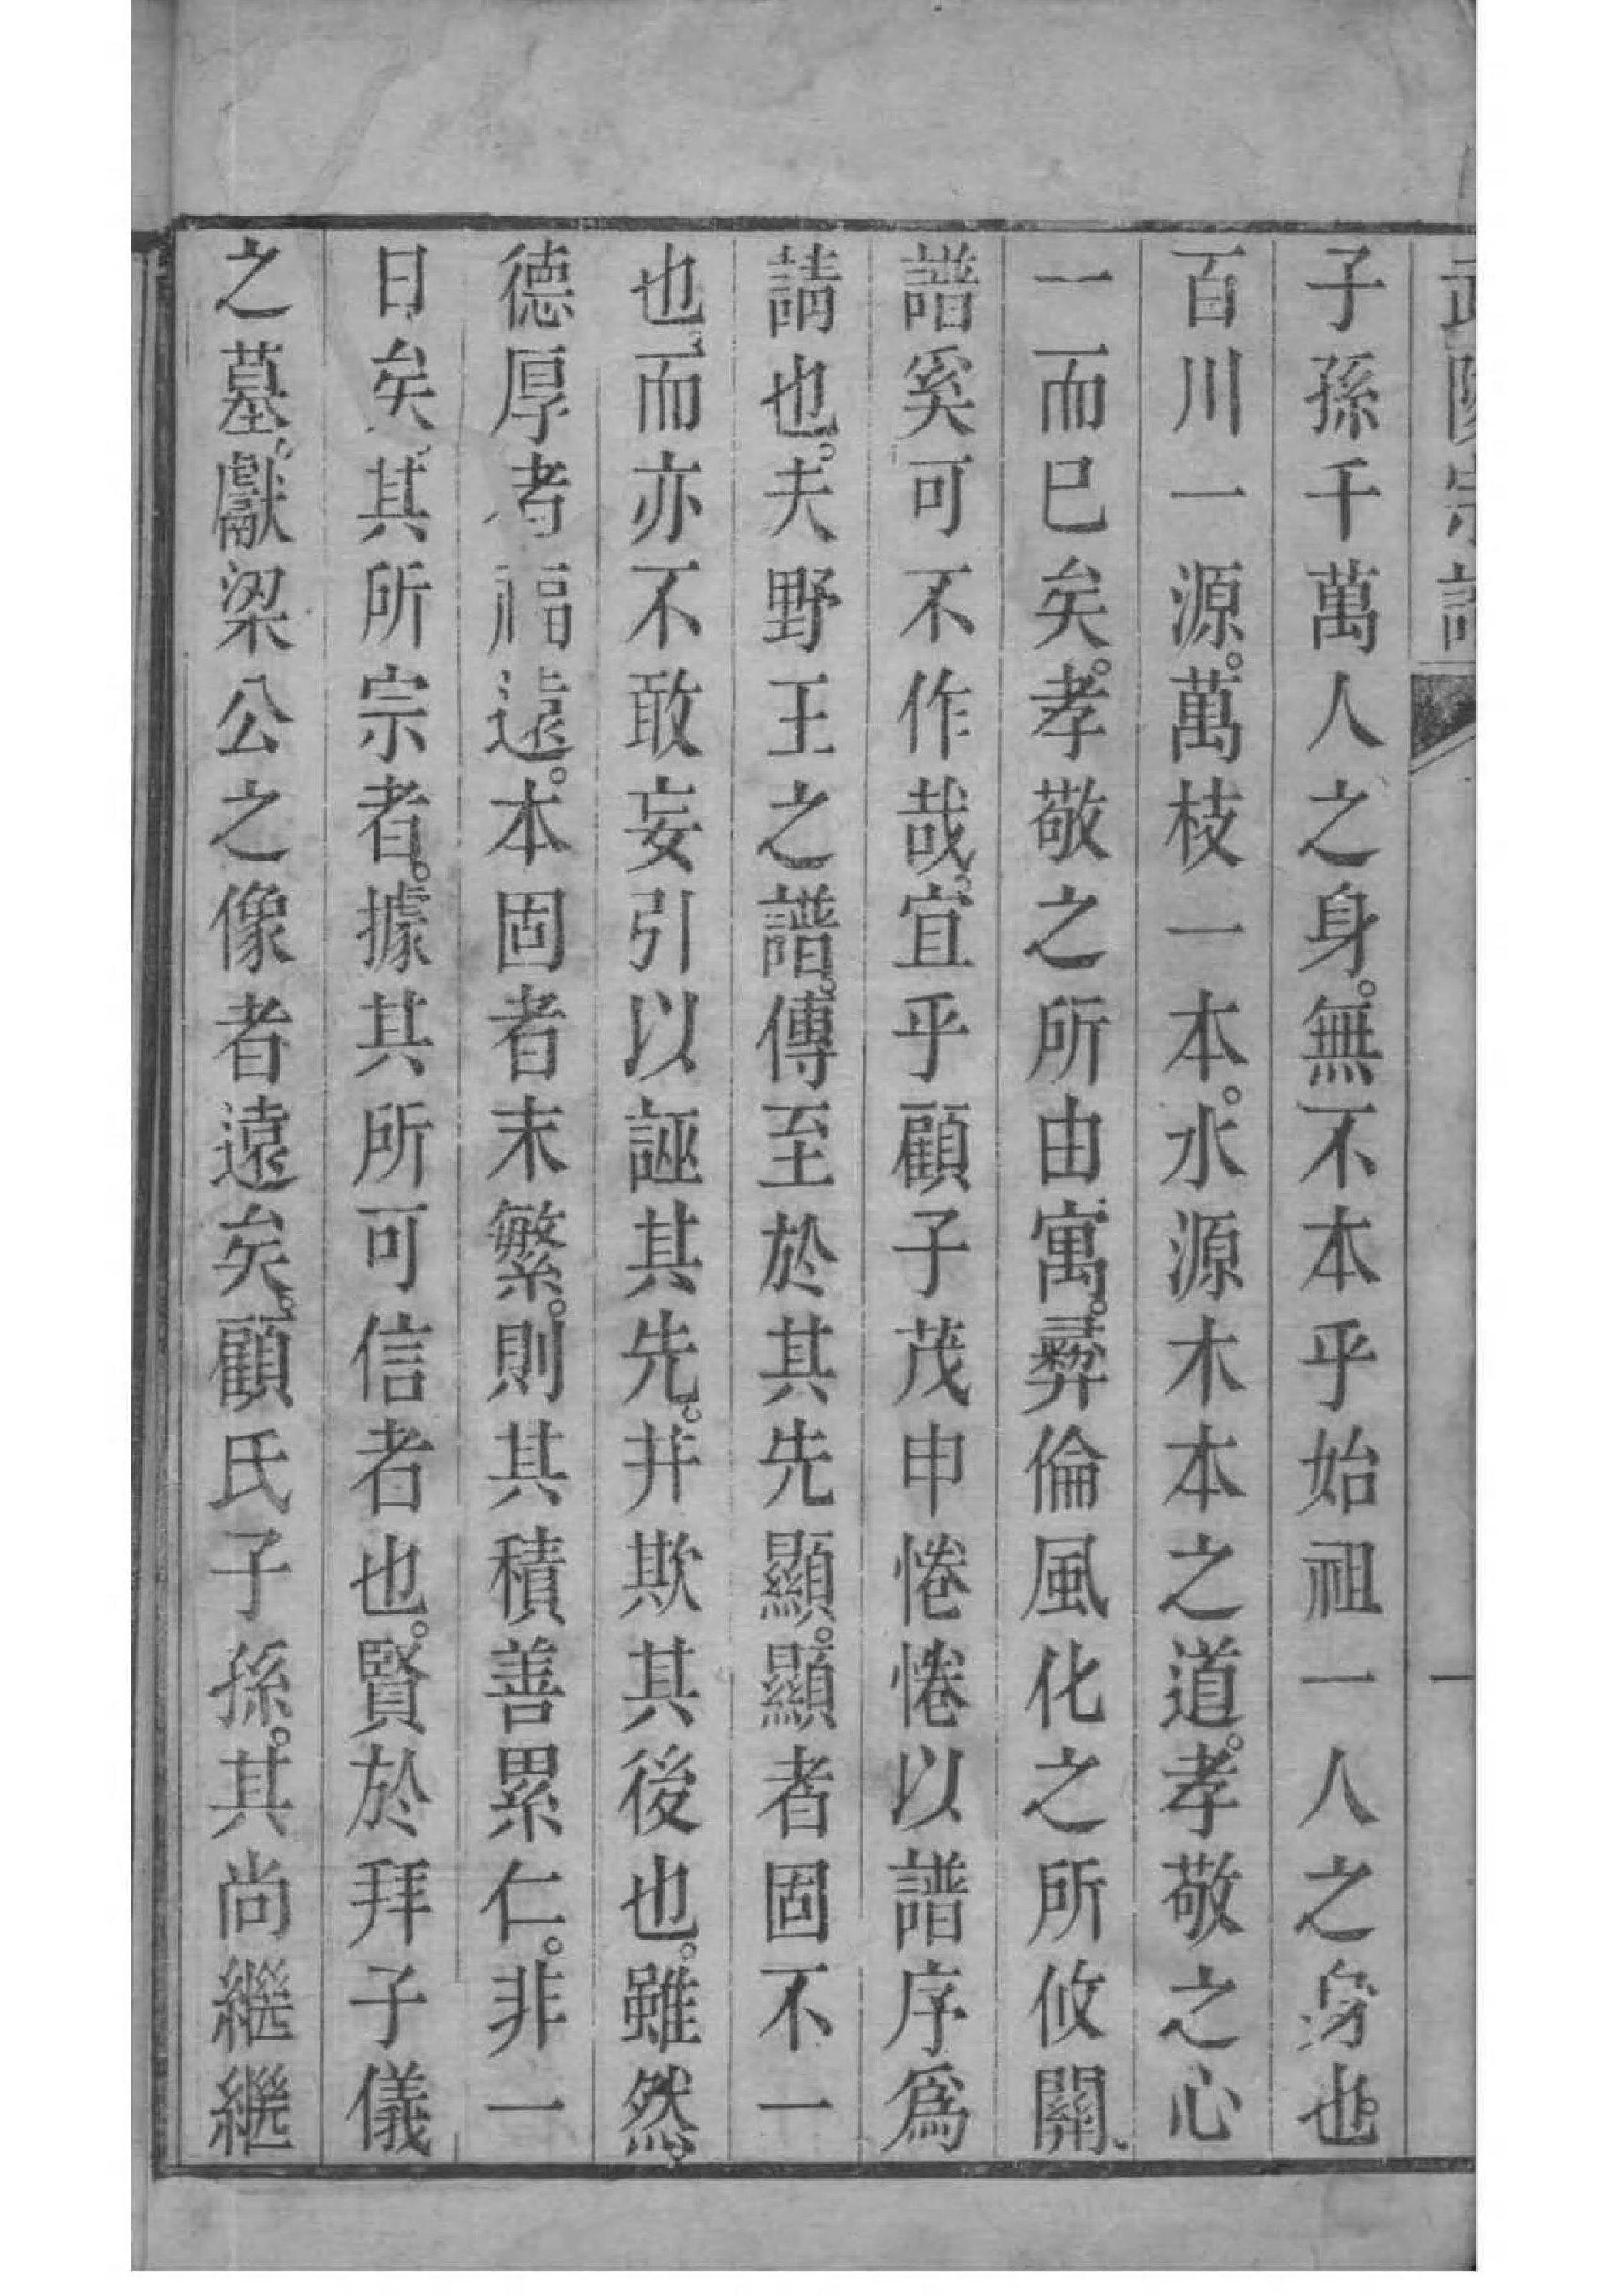 武陵宗譜
一
子孫千萬人之身。無不本乎始祖一人之身也。
百川一源。萬枝一本。水源木本之道。孝敬之心
一而巳矣。孝敬之所由寓。彛倫風化之所攸關、
譜奚可不作哉。宜乎顧子茂申惓惓以譜序爲
請也。夫野王之譜。傳至於其先顯。顯者固不一
也、而亦不敢妄引以誣其先。并欺其後也。雖然。
德厚者福遠。本固者末繁。則其積善累仁。非一
日矣、其所宗者。據其所可信者也。賢於拜子儀
之墓。獻梁公之像者遠矣。顧氏子孫。其尚繼繼